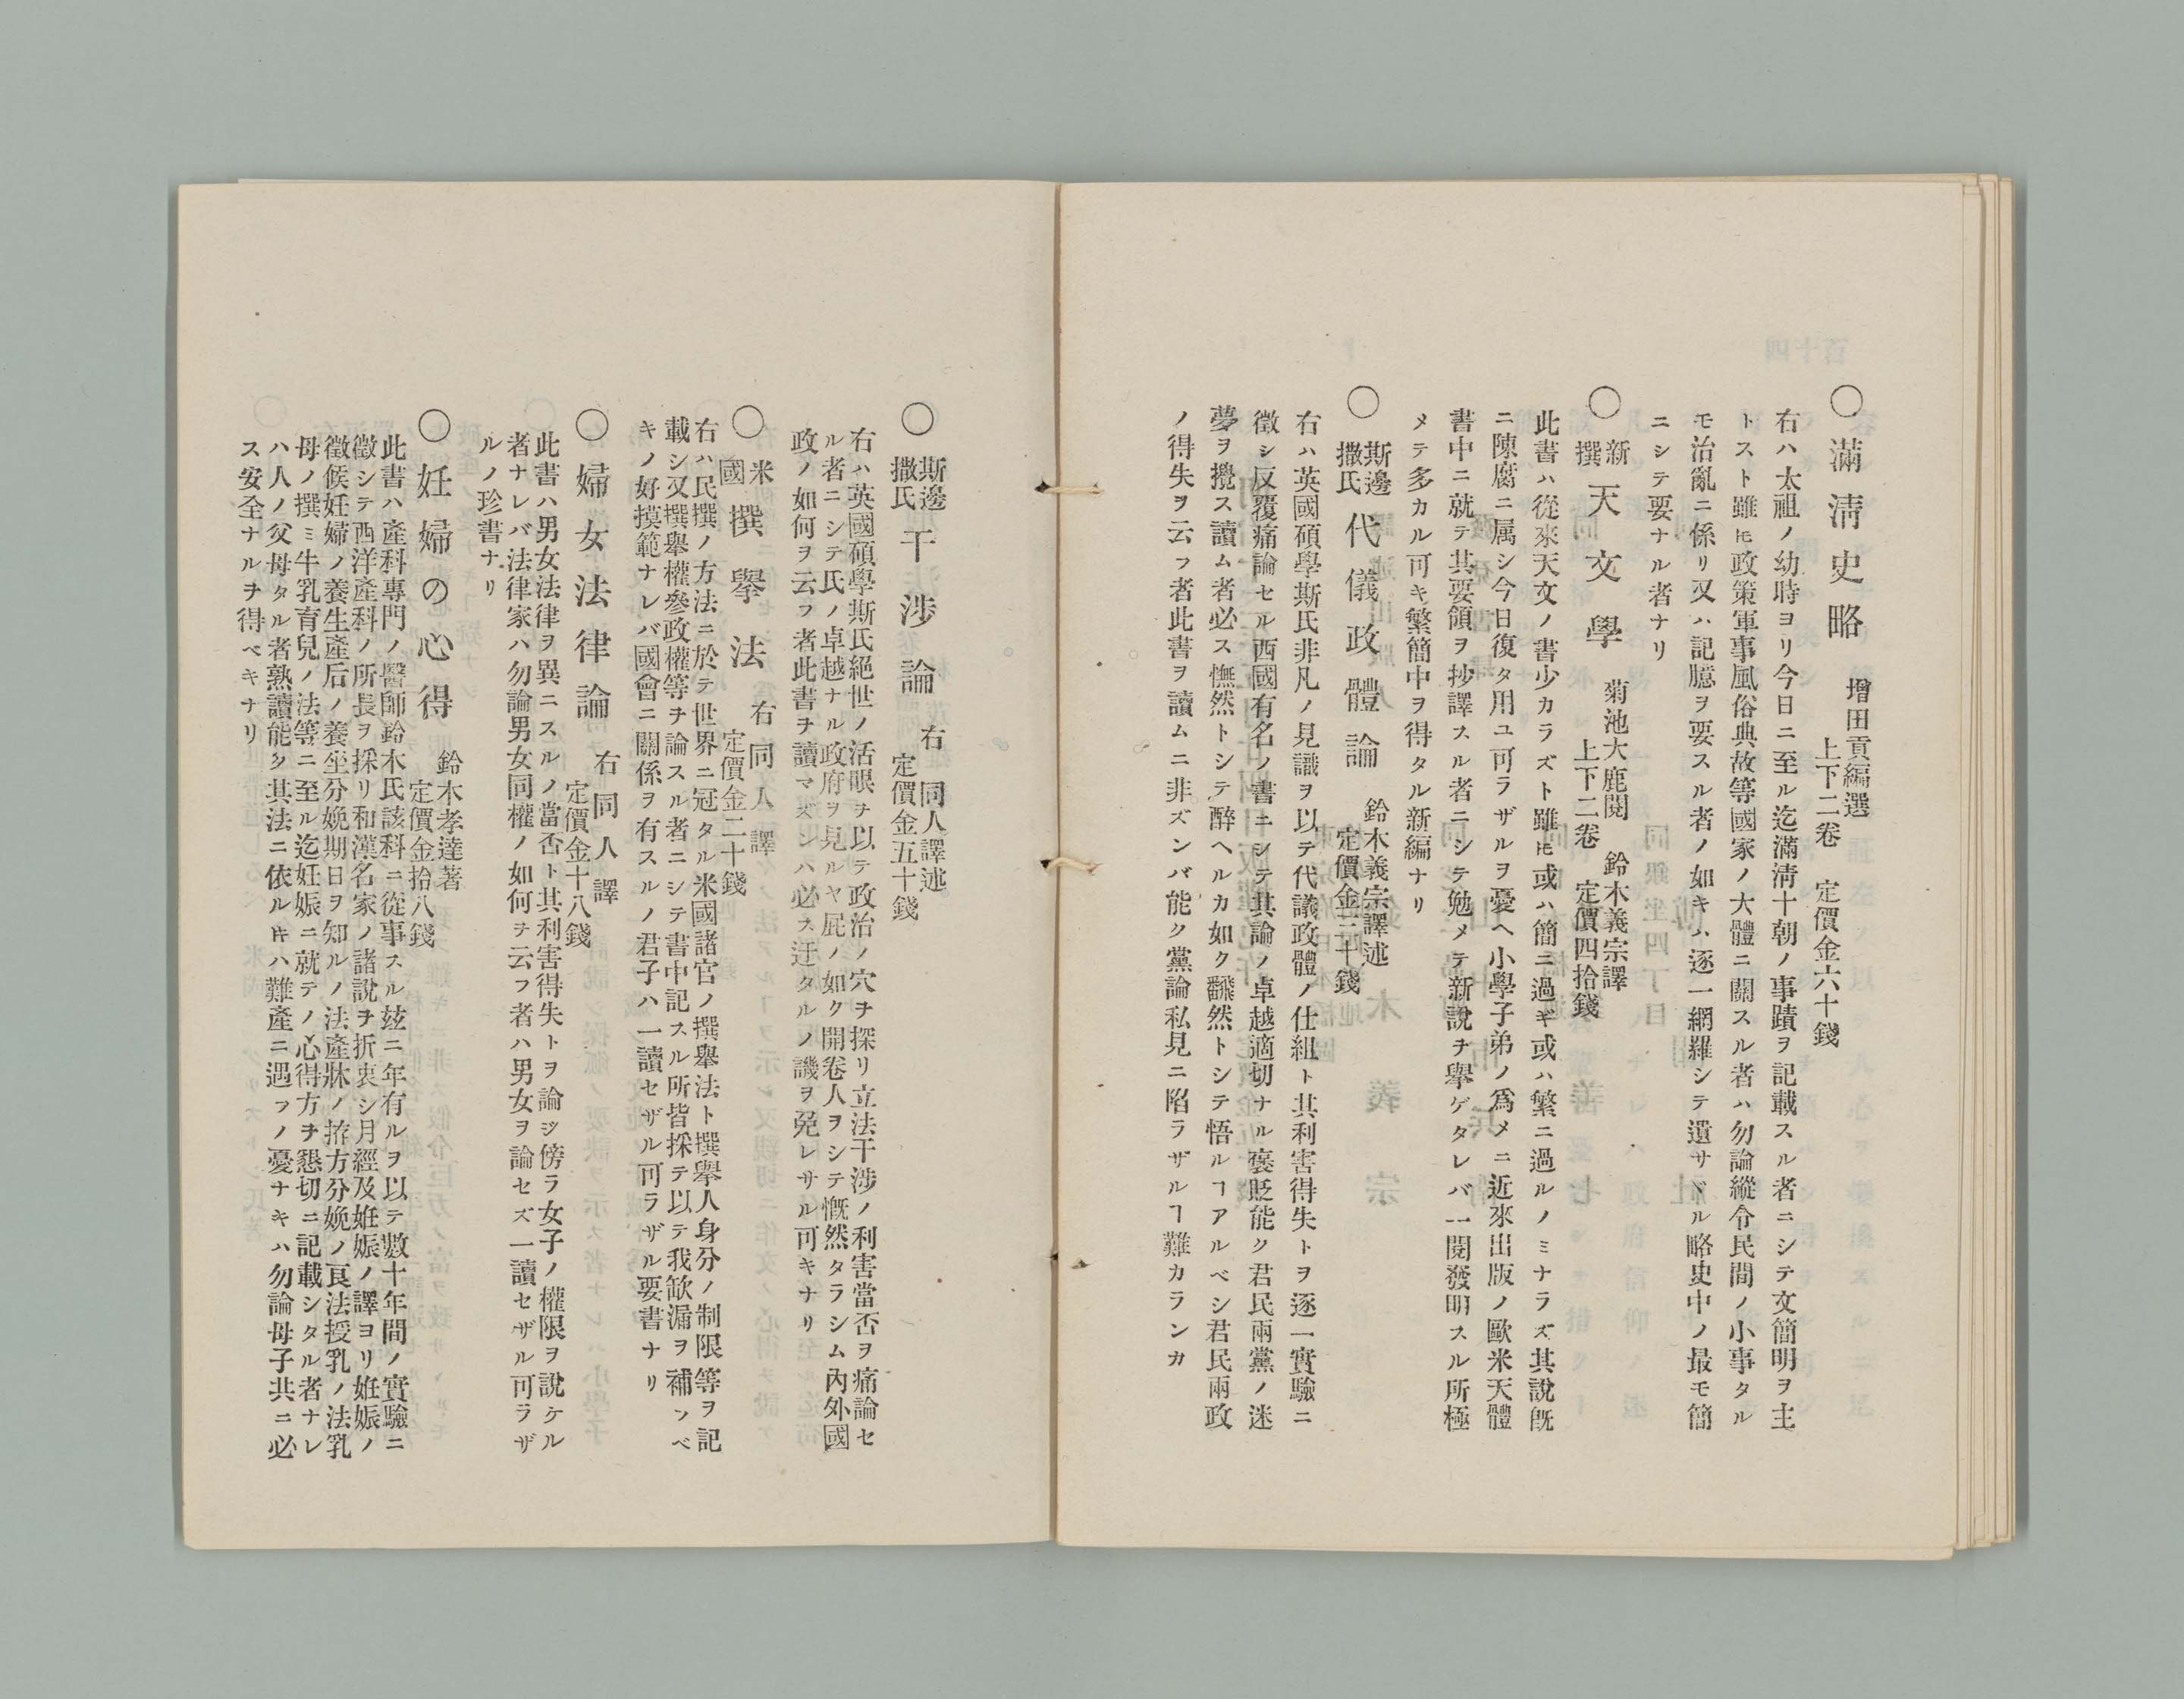 ○滿淸史略　增田貢編選
上下二卷　定價金六十錢
右ハ太祖ノ幼時ヨリ今日ニ至ル迄滿淸十朝ノ事蹟ヲ記載スル者ニシテ文簡明ヲ主
トスト雖𪜈政策軍事風俗典故等國家ノ大體ニ關スル者ハ勿論縱令民間ノ小事タル
モ治亂ニ係リ又ハ記臆ヲ要スル者ノ如キハ逐一網羅シテ遺サヾル略史中ノ最モ簡
ニシテ要ナル者ナリ
○新撰天文學　菊池大鹿閱　鈴木義宗譯
上下二卷　定價四拾錢
此書ハ從來天文ノ書少カラズト雖𪜈或ハ簡ニ過ギ或ハ繁ニ過ルノミナラズ其說旣
ニ陳腐ニ属シ今日復タ用ユ可ラザルヲ憂ヘ小學子弟ノ爲メニ近來出版ノ歐米天體
書中ニ就テ其要領ヲ抄譯スル者ニシテ勉メテ新說ヲ擧ゲタレバ一閱發明スル所極
メテ多カル可キ繁簡中ヲ得タル新編ナリ
○斯邊撒氏代儀政體論　鈴木義宗譯述
定價金三十錢
右ハ英國碩學斯氏非凡ノ見識ヲ以テ代議政體ノ仕組ト其利害得失トヲ逐一實驗ニ
徵シ反覆痛論セル西國有名ノ書ニシテ其論ノ卓越適切ナル褒貶能ク君民兩黨ノ迷
夢ヲ攪ス讀ム者必ス憮然トシテ醉ヘルカ如ク飜然トシテ悟ルヿアルベシ君民兩政
ノ得失ヲ云フ者此書ヲ讀ムニ非ズンバ能ク黨論私見ニ陷ラザルヿ難カランカ
○斯邊撒氏干涉論　右同人譯述
定價金五十錢
右ハ英國碩學斯氏絕世ノ活眼ヲ以テ政治ノ穴ヲ探リ立法干涉ノ利害當否ヲ痛論セ
ル者ニシテ氏ノ卓越ナル政府ヲ見ルヤ屁ノ如ク開卷人ヲシテ慨然タラシム內外國
政ノ如何ヲ云フ者此書ヲ讀マズンハ必ス迂タルノ譏ヲ免レサル可キナリ
○米國撰擧法　右同人譯
定價金二十錢
右ハ民撰ノ方法ニ於テ世界ニ冠タル米國諸官ノ撰擧法ト撰擧人身分ノ制限等ヲ記
載シ又撰擧權參政權等ヲ論スル者ニシテ書中記スル所皆採テ以テ我缼漏ヲ補ツベ
キノ好摸範ナレバ國會ニ關係ヲ有スルノ君子ハ一讀セザル可ラザル要書ナリ
○婦女法律論　右同人譯
定價金十八錢
此書ハ男女法律ヲ異ニスルノ當否ト其利害得失トヲ論ジ傍ラ女子ノ權限ヲ說ケル
者ナレバ法律家ハ勿論男女同權ノ如何ヲ云フ者ハ男女ヲ論セズ一讀セザル可ラザ
ルノ珍書ナリ
○妊婦の心得　鈴木孝達著
定價金拾八錢
此書ハ產科專門ノ醫師鈴木氏該科ニ從事スル玆ニ年有ルヲ以テ數十年間ノ實驗ニ
徵シテ西洋產科ノ所長ヲ採リ和漢名家ノ諸說ヲ折衷シ月經及姙娠ノ譯ヨリ姙娠ノ
徵候妊婦ノ養生產后ノ養坐分娩期日ヲ知ルノ法產牀ノ拵方分娩ノ良法授乳ノ法乳
母ノ撰ミ牛乳育兒ノ法等ニ至ル迄妊娠ニ就テノ心得方ヲ懇切ニ記載シタル者ナレ
ハ人ノ父母タル者熟讀能ク其法ニ依ル𪜈ハ難產ニ遇フノ憂ナキハ勿論母子共ニ必
ス安全ナルヲ得ベキナリ